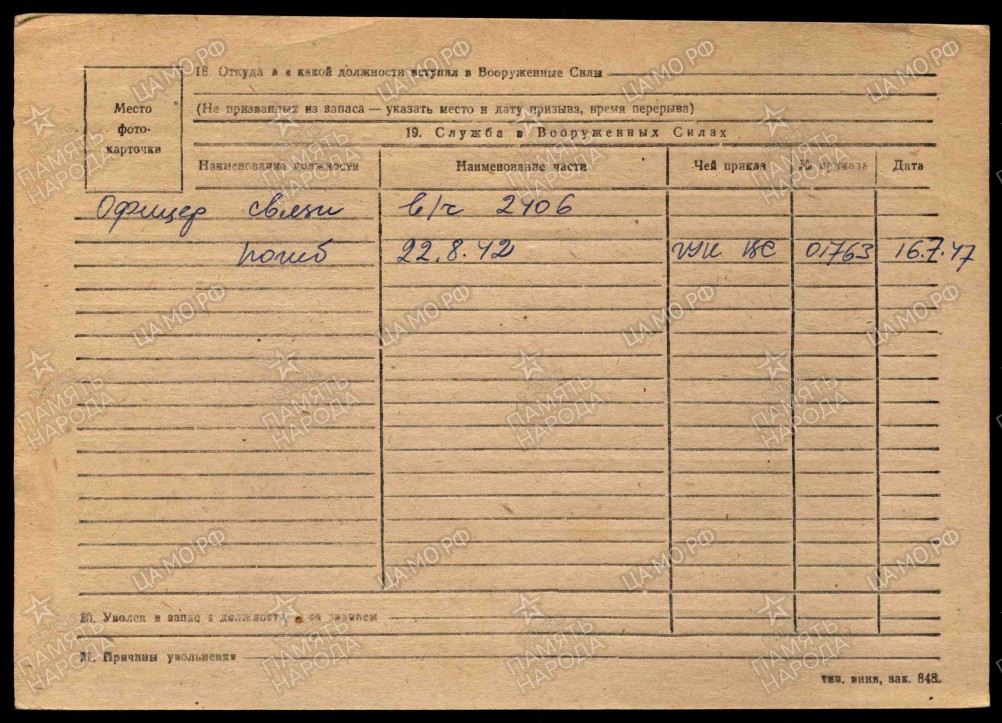 18. Откуда и с какой должности вступил в Вооруженные Силы
(На призванных из запаса — указать место и дату призыва, время перерыва)
Место
фото-
карточки
19. Служба в Вооруженных Силах
Наименование должности Наименование части Чей приказ № приказа Дата
Офицер связи в/ч 2406
погиб 22.8.42 ГУК ВС 01763 16.7.47
20. Уволен в запас с должности и со званием
21. Причины увольнения
тип. виня, зак. 848.
ЦАМО.РФ
ПАМЯТЬ
НАРОДА